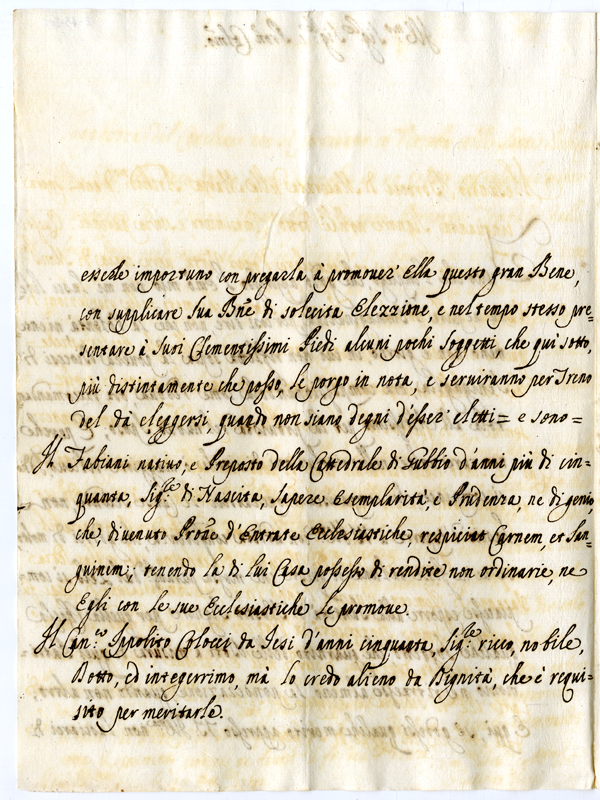 essole importuno con pregarla à promover' Ella questo gran Bene,
con supplicare Sua Bne di solecita Elezzione, e nel tempo stesso pre=
sentare à Suoi Clementissimi Piedi alcuni pochi Soggetti, che qui sotto,
più distintamente che posso, le porgo in nota, e serviranno per Treno
del dà eleggersi, quando non siano degni d'esser' eletti = e sono =
Il Fabiani nativo, e Preposto della Cattedrale di Gubbio d'anni più di cin=
quanta, Sig.re di Nascita, Sapere, Esemplarità, e Prudenza, ne di genio,
che, divenuto Prone d'Entrate Ecclesiastiche, respiciat Carnem, et San=
guinem; tenendo la di lui Casa possesso di rendite non ordinarie, ne
Egli con le sue Ecclesiastiche le promove.
Il Can.co Ippolito Colocci da Jesi d'anni cinquanta, Sig.re ricco, nobile,
Dotto, ed integerrimo, mà lo credo alieno da Dignità, che è requi=
sito per meritarle.